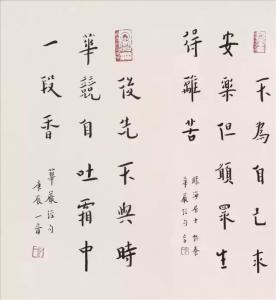 不為自己求
安樂但願眾生
得離苦
華嚴經句 一音
後先不與時
華競自吐霜中
一段香
華嚴經句
庚辰 一音